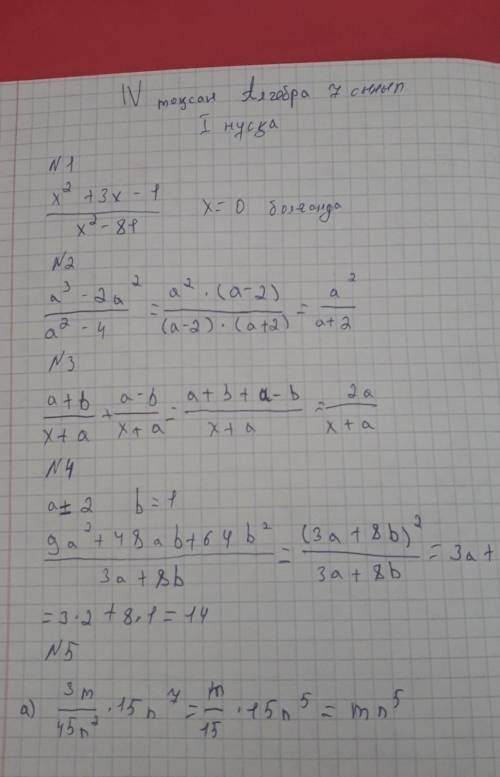 IV тоқсан Алгебра 7 сынып
I нұсқа
N1
(x² + 3x - 1)/(x² - 81) x = 0 болғанда
N2
(a³ - 2a²)/(a² - 4) = (a² · (a-2))/((a-2) · (a+2)) = a²/(a+2)
N3
(a+b)/(x+a) + (a-b)/(x+a) = (a+b+a-b)/(x+a) = 2a/(x+a)
N4
a = 2 b = 1
(9a² + 48ab + 64b²)/(3a + 8b) = (3a + 8b)²/(3a + 8b) = 3a +
= 3·2 + 8·1 = 14
N5
a) 3m/45n² · 15n⁷ = m/15 · 15n⁵ = mn⁵